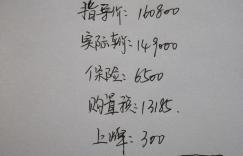 指导价：160800
实际车价：149000
保险：6500
购置税：13185.
上牌：300